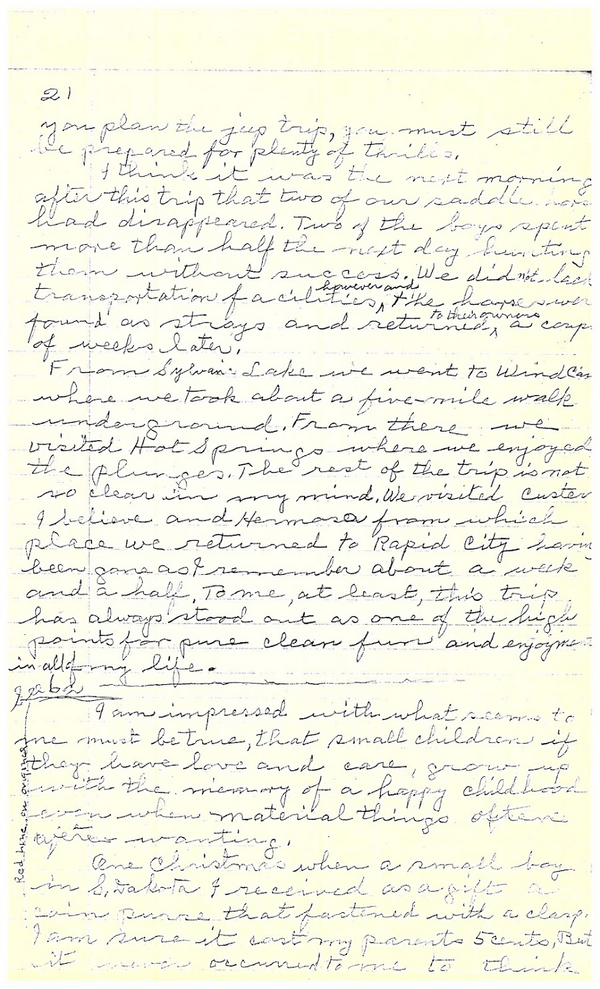 21
you plan the jeep trip, you must still
be prepared for plenty of thrills.
I think it was the next morning
after this trip that two of our saddle
had disappeared. Two of the boys spent
more than half the next day hunting
them without success. We did not lack
however and
transportation facilities, ^ the horses wer
to their owners
found as strays and returned ^ a coup
of weeks later.
From Sylvan Lake we went to Wind Cav
where we took about a five-mile walk
underground. From there we
visited Hot Springs where we enjoyed
the plunges. The rest of the trip is not
so clear in my mind. We visited Custer
I believe and Hermosa from which
place we returned to Rapid City havin
been gone as I remember about a week
and a half. To me, at least, this trip
has always stood out as one of the high
points for pure clean fun and enjoyment
in all of my life.
I am impressed with what seems to
me must be true, that small children if
they have love and care, grow up
with the memory of a happy childhood
even when material things often
were wanting.
Red line on original
One Christmas when a small boy
in S. Dakota I received as a gift a
coin purse that fastened with a clasp.
I am sure it cost my parents 5 cents, But
it never occurred to me to think